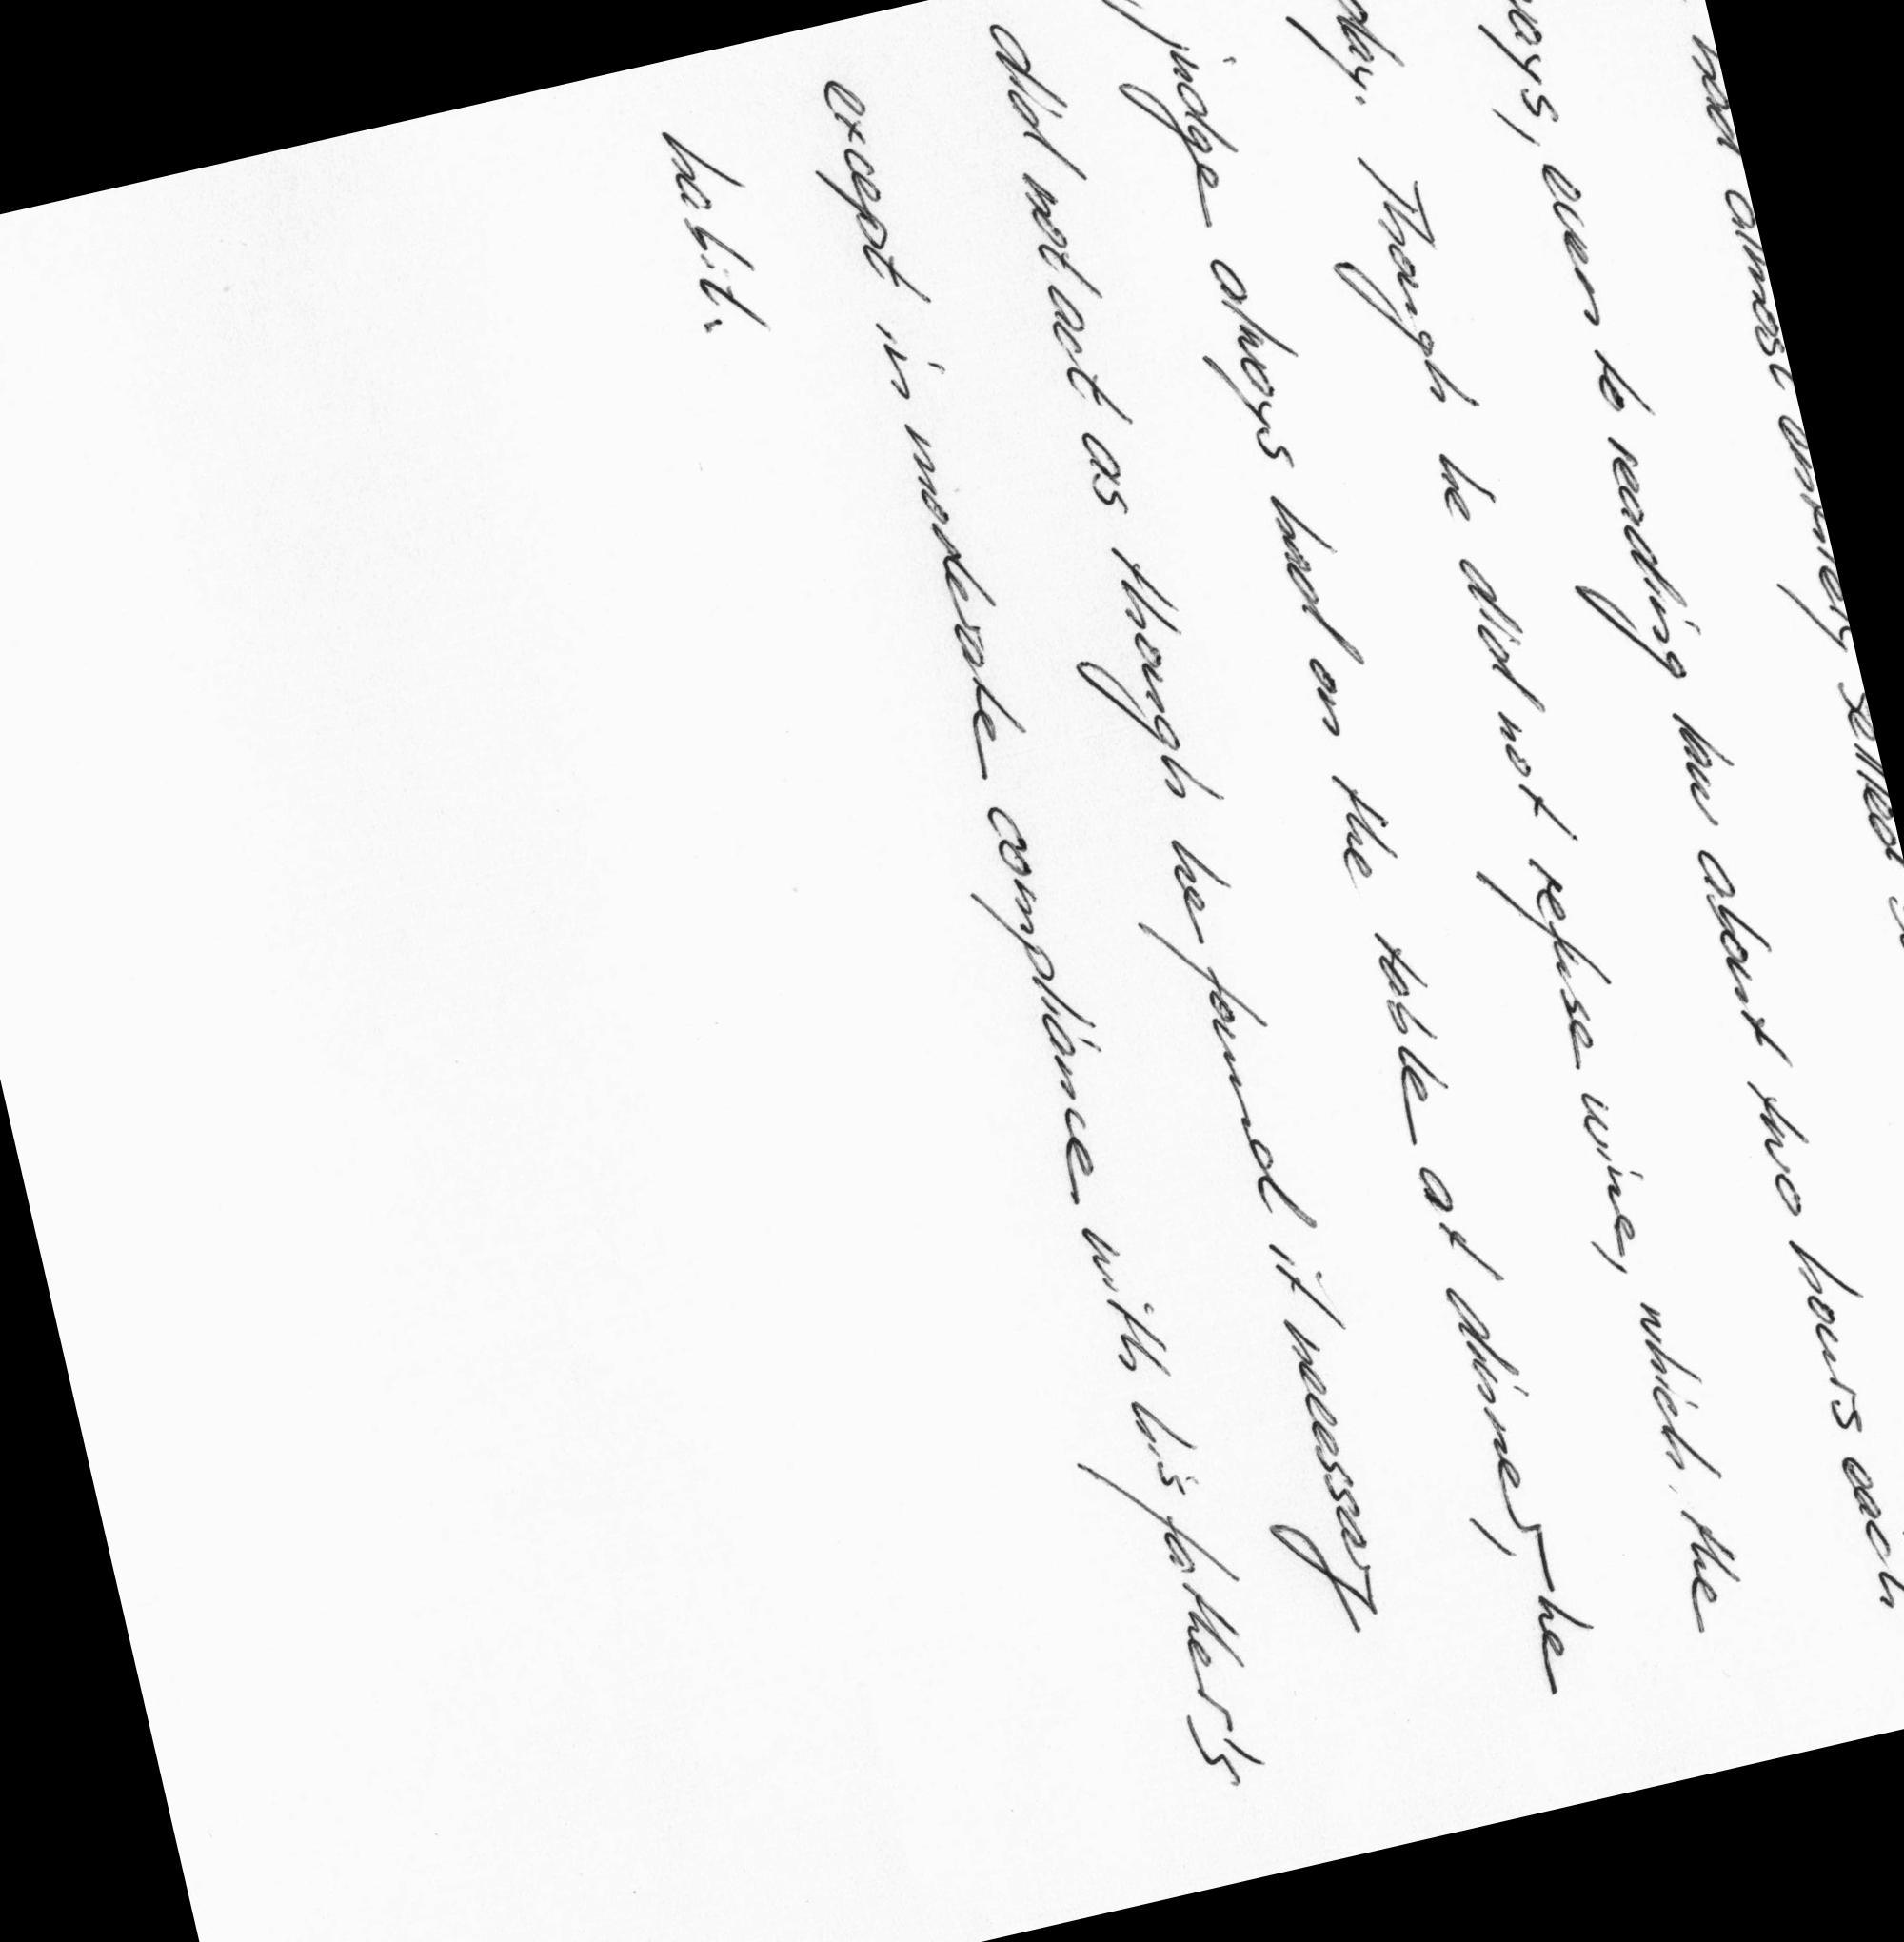 had almost entirely settled
ways, even to reading law about two hours each
day. Though he did not refuse wine, which the
judge always had on the table at dinner,—he
did not act as though he found it necessary
except in moderate compliance with his father's
habit.